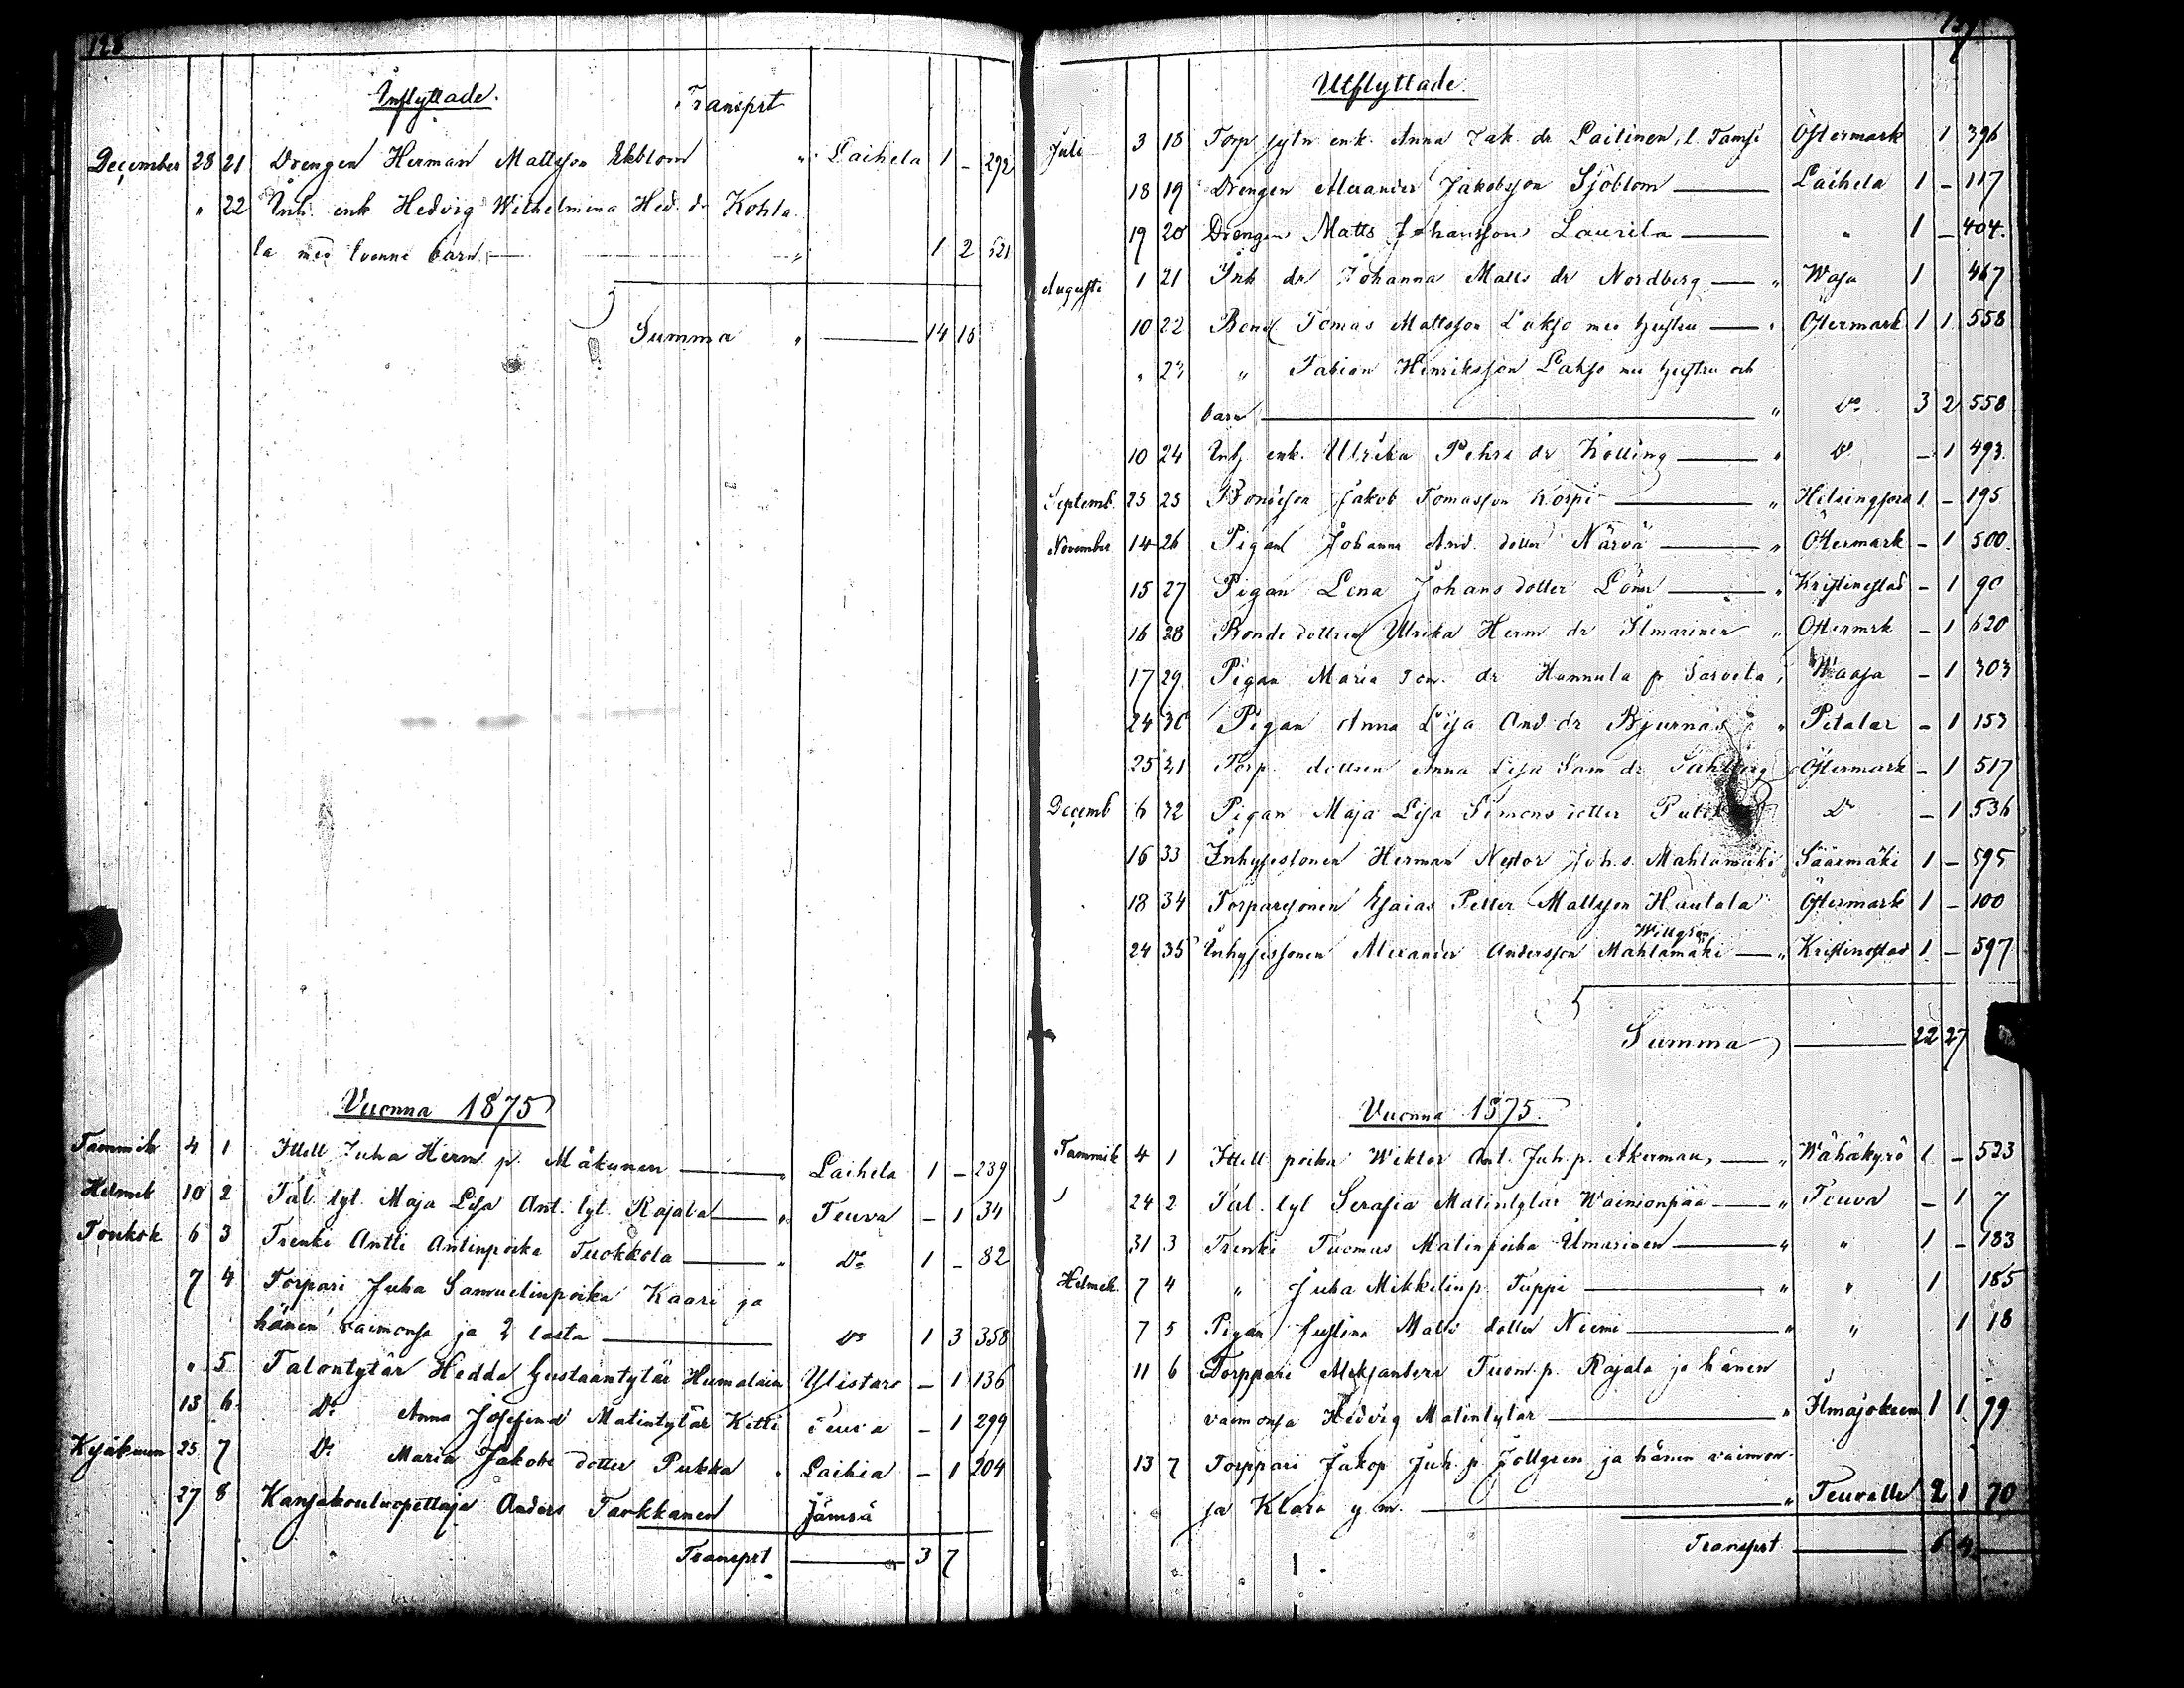 Inflyttade. Transprt
December 28 21 Drengen Herman Mattsson Ekblom " Laihela 1 – 292
" 22 Inh. enk Hedvig Wilhelmina Hed. dr Kohla
la med tvenne barn " 1 2 521
Summa " 14 16
Vuonna 1875
Tammik 4 1 Ittell Juha Herm p. Mäkunen Laihela 1 – 239
Helmik 10 2 Tal. tyt. Maja Lisa Ant. tyt. Rajala " Teuva – 1 34
Toukok 6 3 Trenki Antti Antinpoika Tuokkola " Do 1 – 82
7 4 Torpari Juha Samuelinpoika Kaari ja
hänen vaimonsa ja 2 lasta Do 1 3 358
" 5 Talontytär Hedda Gustaantytär Humalain Ylistaro – 1 136
13 6 Do Anna Josefina Matintytär Kitti Teuva – 1 299
Kesäkuun 25 7 Do Maria Jakobs dotter Pukka " Laihia – 1 204
27 8 Kansakouluopettaja Anders Tarkkanen Jämsä
Transprt 3 7
Utflyttade.
Juli 3 18 Torp sytn enk. Anna Jak. dr Laitinen, l. Östermark 1 396
18 19 Drengen Alexander Jakobsson Sjöblom Laihela 1 – 117
19 20 Drengen Matts Johansson Laurila " 1 – 404.
Augusti 1 21 Inh dr Johanna Matts dr Nordberg " Wasa 1 467
10 22 Bond Tomas Mattsson Lakso med hustru " Östermark 1 1 558
" 23 " Fabian Henriksson Lakso med hustru och
barn " Do 3 2 558
10 24 Inh enk. Ulrika Pehrs dr Kölling " Do – 1 493.
Septemb. 25 25 Bondeson Jakob Tomasson Korpi " Helsingfors 1 – 195
November 14 26 Pigan Johanna And. dotter Närvä " Östermark – 1 500.
15 27 Pigan Lena Johans dotter Lönn " Kristinestad – 1 90
16 28 Bonde dottren Ulrika Herm dr Ilmarinen " Östermrk – 1 620
17 29 Pigan Maria dr Hannula p Sarvela " Waasa – 1 303
24 30 Pigan Anna Lisa And dr Bjurnäs " Petalax – 1 153
25 31 Torp. dottren Anna Lisa Sam dr Östermark – 1 517
Decemb 6 32 Pigan Maja Lisa Simons dotter Do – 1 536
16 33 Inhysessonen Herman Nestor Joh.s. Mahlamäki Sääxmäki 1 – 595
18 34 Torparsonen Esaias Petter Mattsson Hautala Östermark 1 – 100
24 35 Inhysessonen Alexander Andersson Mahlamäki " Kristinestad 1 – 597
Summa 22 27
Vuonna 1875.
Tammik 4 1 Ittell poika Wiktor Ant. Juh. p. Åkerman, " Wähäkyrö 1 – 523
24 2 Tal. tyt Serafia Matintytär Wainionpää " Teuva – 1 7
31 3 Trenki Tuomas Matinpoika Ilmarinen " " 1 – 183
Helmik. 7 4 " Juha Mikkelinp. Tuppi " " 1 185
7 5 Pigan Justina Matts dotter Niemi " " 1 18
11 6 Torppari Aleksanteri Tuom. p. Rajala ja hänen
vaimonsa Hedvig Matintytär " Ilmajokeen 1 1 99
13 7 Torppari Jakop Juh. p. Jollgren ja hänen vaimon
sa Klara y.m. " Teuvalle 2 1 70
Transprt 6 4